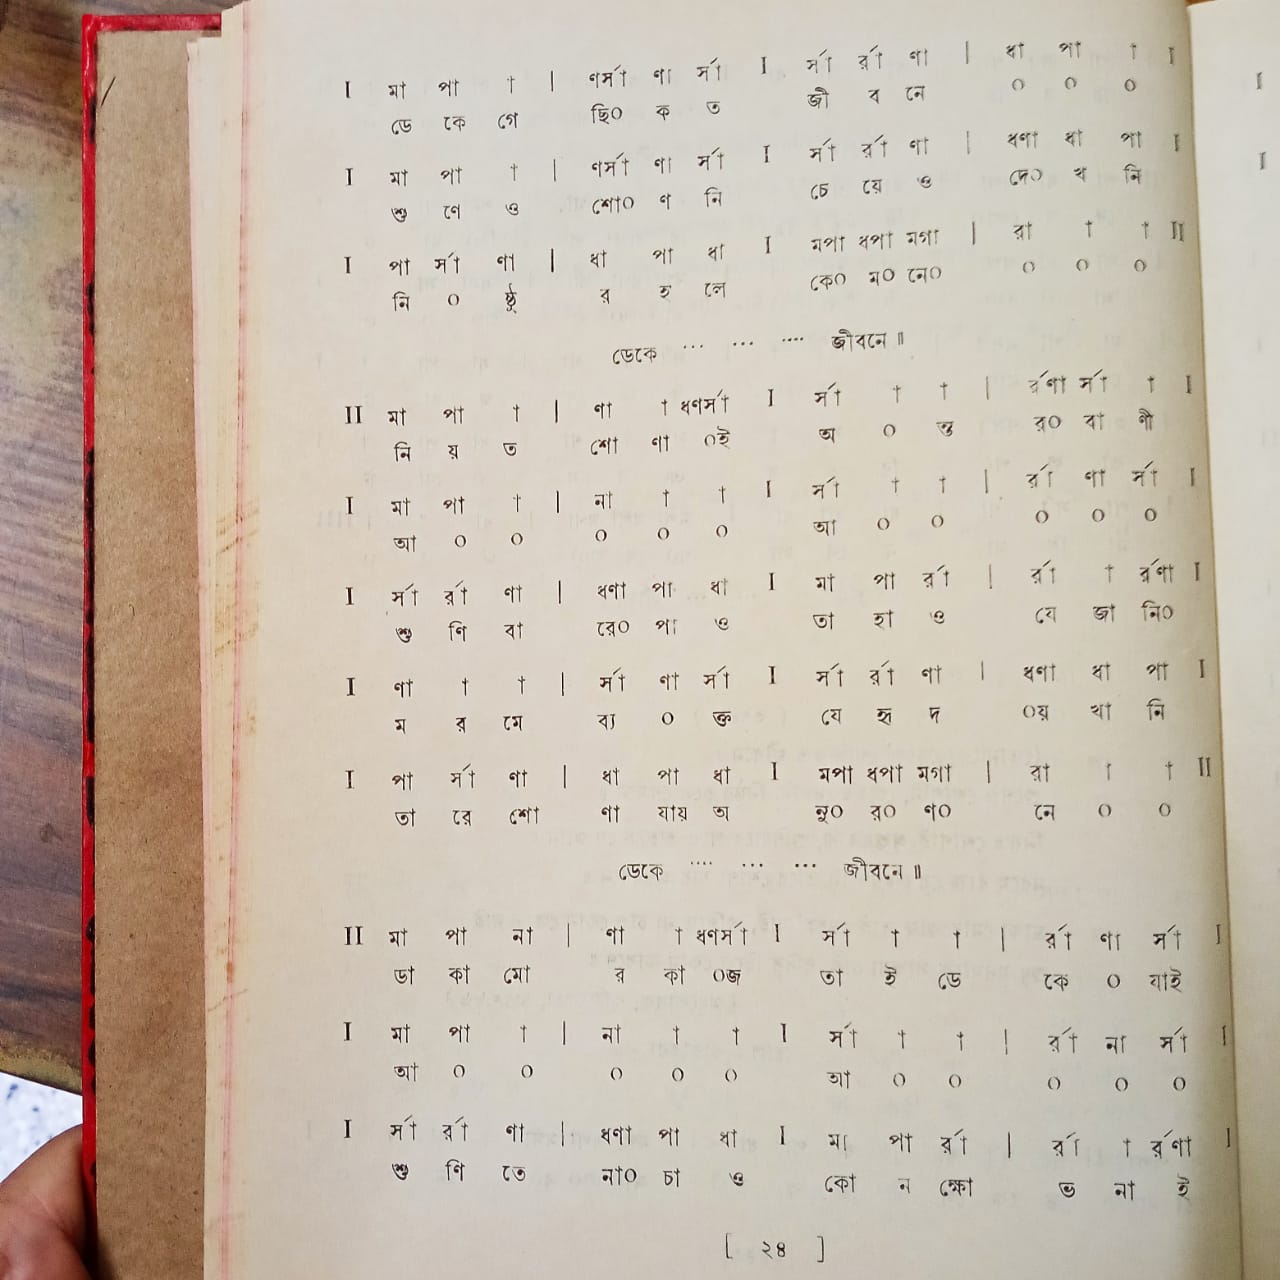 I মা পা া | ণর্সা ণা র্সা I র্সা র্রা ণা | ধা পা া I
ডে কে গে ছি০ ক ত জী ব নে ০ ০ ০
I মা পা া | ণর্সা ণা র্সা I র্সা র্রা ণা | ধণা ধা পা I
শু ণে ও শো০ ণ নি চে য়ে ও দে০ খ নি
I পা র্সা ণা | ধা পা ধা I মপা ধপা মগা | রা া া II
নি ০ ষ্ঠু র হ লে কে০ ম০ নে০ ০ ০ ০
ডেকে ... ... .... জীবনে॥
II মা পা া | ণা া ধণর্সা I র্সা া া | র্রণা র্সা া I
নি য় ত শো ণা ০ই অ ০ ন্ত র০ বা ণী
I মা পা া | না া া I র্সা া া | র্রা ণা র্সা I
আ ০ ০ ০ ০ ০ আ ০ ০ ০ ০ ০
I র্সা র্রা ণা | ধণা পা ধা I মা পা র্রা | র্রা া র্রণা I
শু ণি বা রে০ পা ও তা হা ও যে জা নি০
I ণা া া | র্সা ণা র্সা I র্সা র্রা ণা | ধণা ধা পা I
ম র মে ব্য ০ ক্ত যে হৃ দ ০য় খা নি
I পা র্সা ণা | ধা পা ধা I মপা ধপা মগা | রা া া II
তা রে শো ণা যায় অ নু০ র০ ণ০ নে ০ ০
ডেকে .... ... ... জীবনে॥
II মা পা না | ণা া ধণর্সা I র্সা া া | র্রা ণা র্সা I
ডা কা মো র কা ০জ তা ই ডে কে ০ যাই
I মা পা া | না া া I র্সা া া | র্রা না র্সা I
আ ০ ০ ০ ০ ০ আ ০ ০ ০ ০ ০
I র্সা র্রা ণা | ধণা পা ধা I মা পা র্রা | র্রা া র্রণা I
শু ণি তে না০ চা ও কো ন ক্ষো ভ না ই
[ ২৪ ]